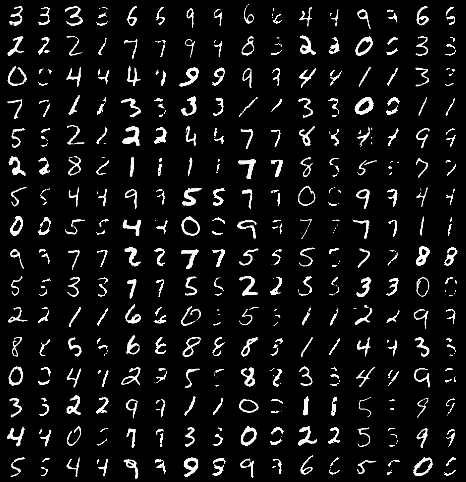 3 3 3 3 6 6 9 9 6 6 4 4 9 6
2 2 2 7 7 9 9 8 3 2 2 0 3 3
0 4 4 4 9 9 9 4 4 1 1 3 3
7 7 1 1 3 3 3 3 1 1 3 3 0 0 1 1
5 5 2 2 2 4 4 7 7 8 8 4 9 9
2 2 8 1 1 1 1 7 7 8 5 7 7
5 5 4 4 9 5 5 7 7 0 9 4 4
0 0 5 5 4 4 0 9 7 7 7 1 1
9 7 7 2 2 7 7 5 5 5 7 7 8 8
5 5 3 3 7 7 5 5 2 2 5 5 3 3 0
2 2 1 1 6 6 0 5 1 1 2 2 9
8 8 5 6 6 8 8 8 1 1 4 4 3 3
0 4 4 2 5 8 3 3 4 4 9
3 3 2 2 9 1 1 0 1 1 5 9 9
4 4 0 7 7 3 3 0 0 2 2 5 5 9 9
5 5 4 4 9 9 8 9 6 5 5 0